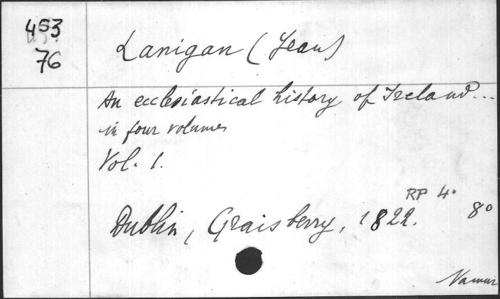 453
76
Lanigan (Jean)
An ecclesiastical history of Ireland...
in four volumes
Vol. 1.
RP 4°
Dublin, Graisberry, 1822. 8°
Namur